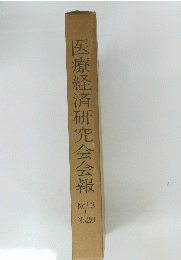 医療経済研究会会報
No.13
No.20